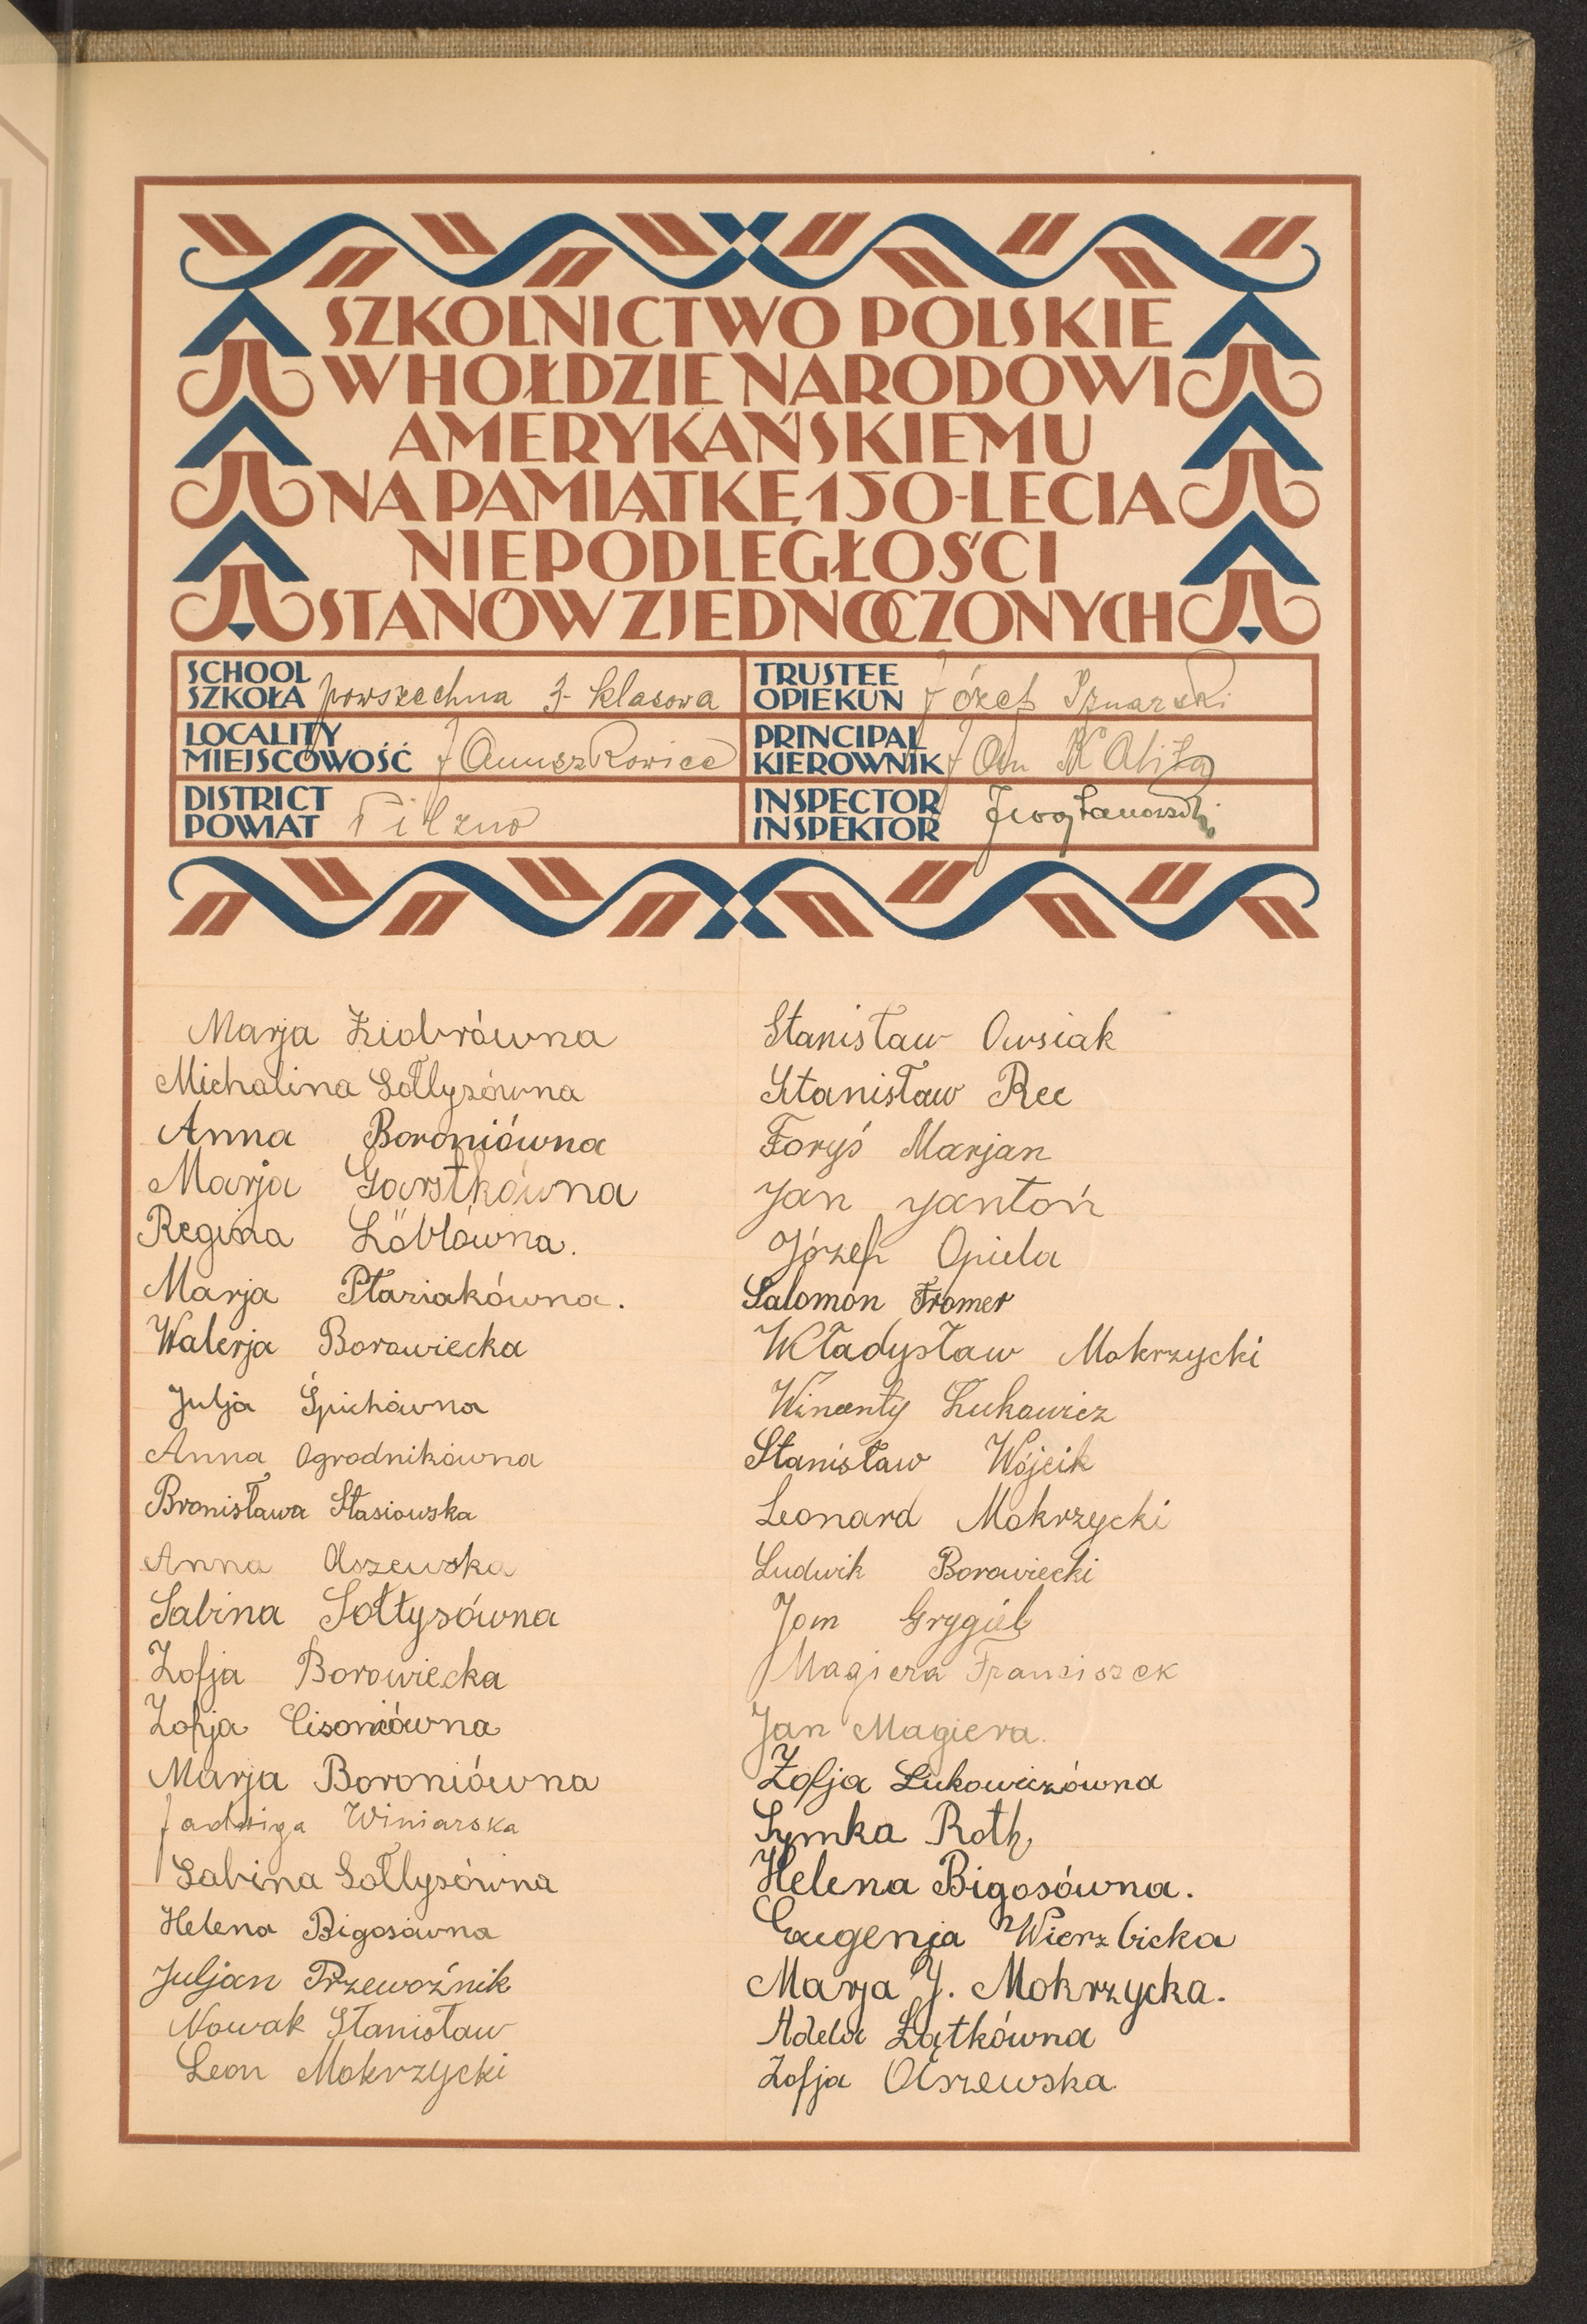 SZKOLNICTWO POLSKIE
W HOŁDZIE NARODOWI
AMERYKAŃSKIEMU
NA PAMIĄTKĘ 150-LECIA
NIEPODLEGŁOŚCI
STANÓW ZJEDNOCZONYCH
SCHOOL
SZKOŁA powszechna 3-klasowa
LOCALITY
MIEJSCOWOŚĆ Januszkowice
DISTRICT
POWIAT Pilzno
TRUSTEE
OPIEKUN Józef
PRINCIPAL
KIEROWNIK Jan
INSPECTOR
INSPEKTOR
Marja Ziobrówna
Michalina Sołtysówna
Anna Boroniówna
Marja Garstkówna
Regina Löblówna.
Marja Ptaziakówna.
Walerja Borowiecka
Julja Śpichówna
Anna Ogrodnikówna
Bronisława Stasiowska
Anna Olszewska
Sabina Sołtysówna
Zofja Borowiecka
Zofja Cisoniówna
Marja Boroniówna
Jadwiga Winiarska
Sabina Sołtysówna
Helena Bigosówna
Juljan Przewoźnik
Nowak Stanisław
Leon Mokrzycki
Stanisław Owsiak
Stanisław Rec
Foryś Marjan
Jan Jantoń
Józef Opiela
Salomon Fromer
Władysław Mokrzycki
Wincenty Łukawicz
Stanisław Wójcik
Leonard Mokrzycki
Ludwik Borowiecki
Jan Grygiel
Magiera Franciszek
Jan Magiera.
Zofja Łukowiczówna
Symka Roth
Helena Bigosówna.
Eugenja Wierzbicka
Marja J. Mokrzycka.
Adela Łątkówna
Zofja Olszewska